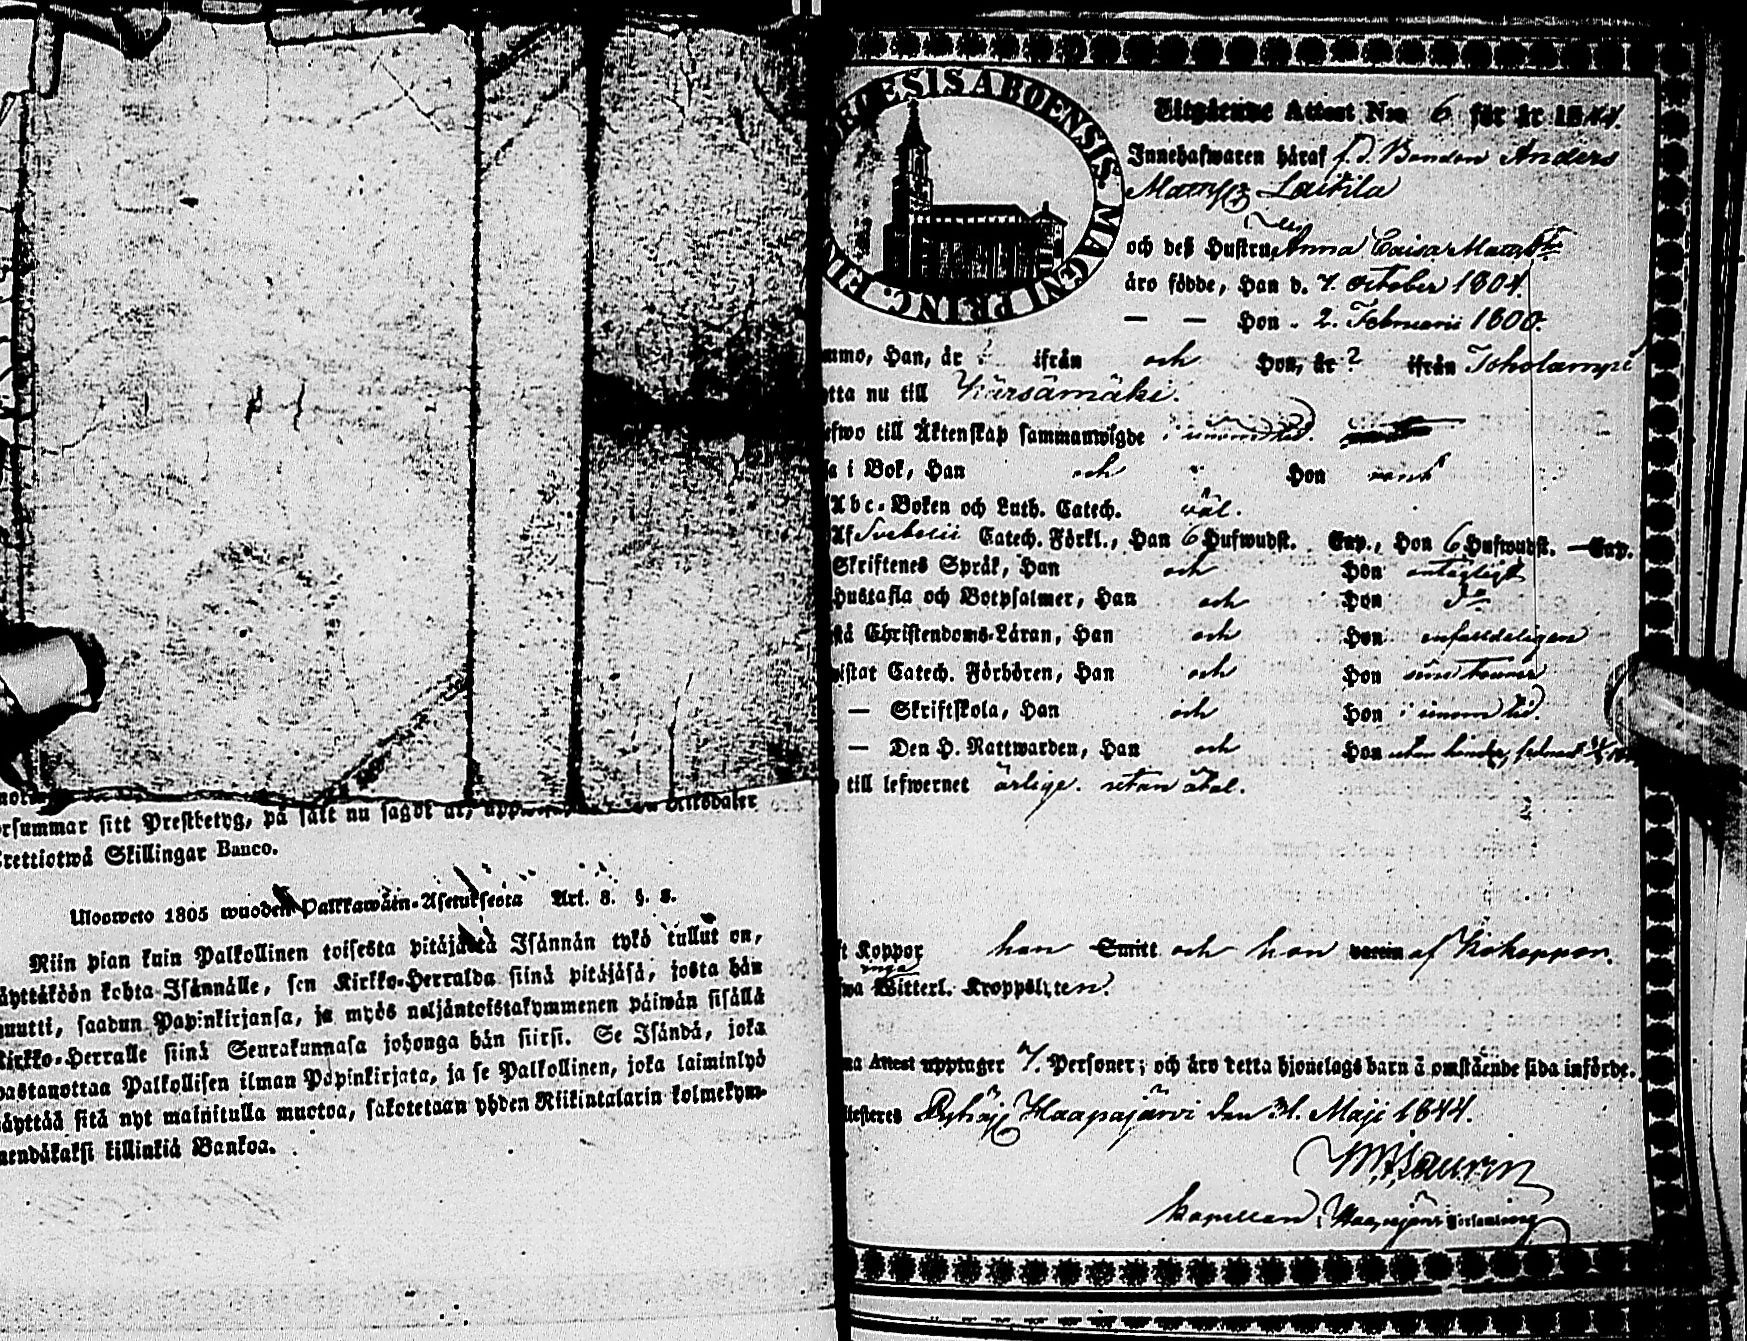 orsummar sitt Prestbetyg, på sätt nu sagdt är,
Trettiotwå Skillingar Banco.
Uloosweto 1805 wuoden Palkkawäen-Asetuksesta Art. 8. §. 8.
Niin pian kuin Palkollinen toisesta pitäjästä Isännän tykö tullut on,
äyttäköön kohta Isännälle, sen Kirkko-Herralda siinä pitäjäsä, josta hän
muutti, saadun Papinkirjansa, ja myös neljäntoistakymmenen päiwän sisällä
Kirkko-Herralle siinä Seurakunnasa johonga hän siirsi. Se Isändä, joka
wastanottaa Palkollisen ilman Papinkirjata, ja se Palkollinen, joka laiminlyö
äyttää sitä nyt mainitulla muotoa, sakotetaan yhden Riikintalarin kolmekym-
mendäkaksi killinkiä Bankoa.
ECESIS ABOENSIS. MAGNI PRINC. FIN
Utgåenve Attest N:o 6 för år 1844.
Innehafwaren häraf f. d. Bonden Anders
Matts Laitila
och deß Hustru Anna Caisa Matts
äro födde, Han d. 7. october 1804.
— — Hon . 2. Februarii 1800.
mmo, Han, år ifrån och Hon, år ? ifrån Toholampi
tta nu till Kärsämäki.
efwo till Äktenskap sammanwigde i
a i Bok, Han och Hon
Abc-Boken och Luth. Catech. väl.
Af Svebelii Catech. Förkl., Han 6 Hufwudst. Cap., Hon 6 Hufwudst. — Cap.
Skriftenes Språk, Han och Hon
Hustafla och Botpsalmer, Han och Hon d:o
stå Christendoms-Läran, Han och Hon enfaldeligen
wistat Catech. Förhören, Han och Hon
— Skriftskola, Han och Hon i sinom tid.
— Den H. Nattwarden, Han och Hon utan hinder,
till lefwernet ärlige. utan åtal.
t Koppor han Smitt och hon af Kokoppor.
wa inga Witterl. Kroppslyten.
na Attest upptager 7. Personer; och äro detta hjonelags barn å omstående sida införde.
ttesteres Pyhäj. Haapajärvi den 31. Maji 1844.
Laurin
Kapellan i Haapajärvi Församling